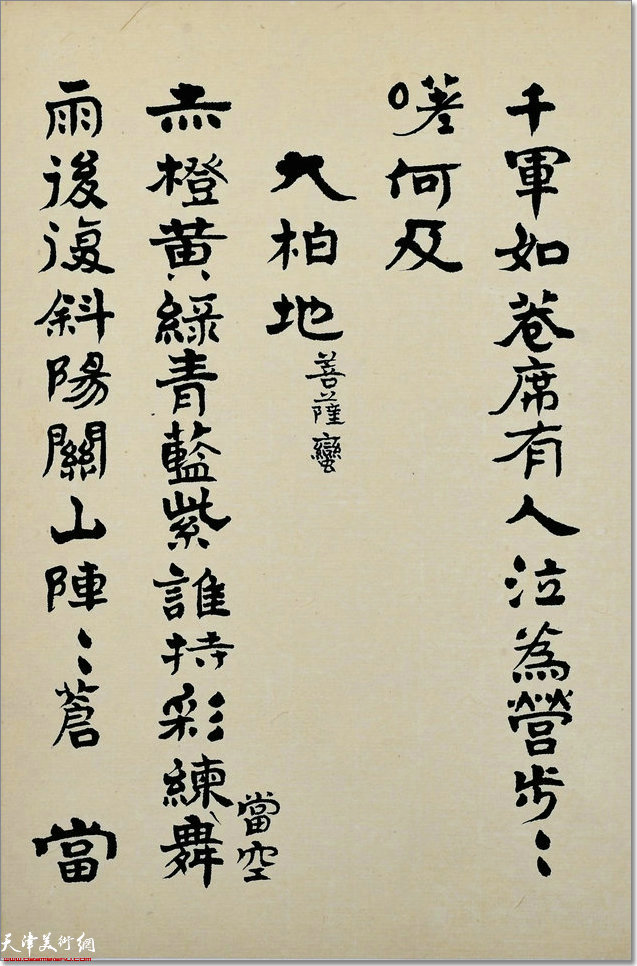 千軍如卷席有人泣為營步〻
嗟何及
大柏地
菩薩蠻
赤橙黄綠青藍紫誰持彩練舞
當空
雨後復斜陽關山陣〻蒼 當
天津美術網